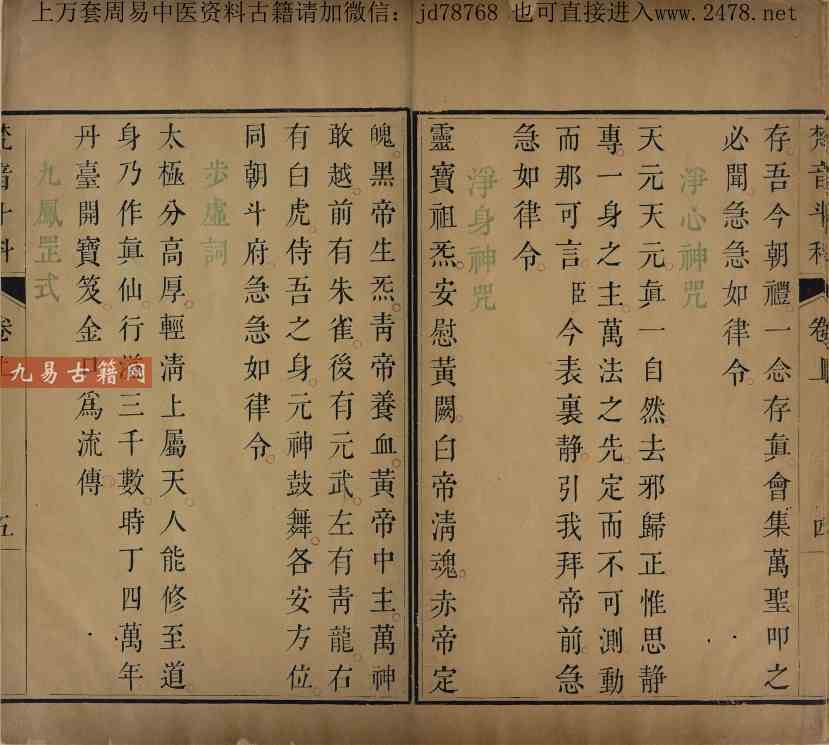 上万套周易中医资料古籍请加微信：jd78768 也可直接进入www.2478.net
梵音斗科 卷上 四
存吾今朝禮一念存眞會集萬聖叩之
必聞急急如律令
淨心神咒
天元天元眞一自然去邪歸正惟思静
專一身之主萬法之先定而不可測動
而那可言臣今表裏静引我拜帝前急
急如律令
淨身神咒
靈寶祖炁安慰黃闕白帝淸魂赤帝定
魄黑帝生炁靑帝養血黃帝中主萬神
敢越前有朱雀後有元武左有靑龍右
有白虎侍吾之身元神鼓舞各安方位
同朝斗府急急如律令
步虛詞
太極分高厚輕淸上屬天人能修至道
身乃作眞仙行三千數時丁四萬年
丹臺開寶笈金爲流傳
九鳳罡式
梵音斗科 卷上 五
九易古籍网